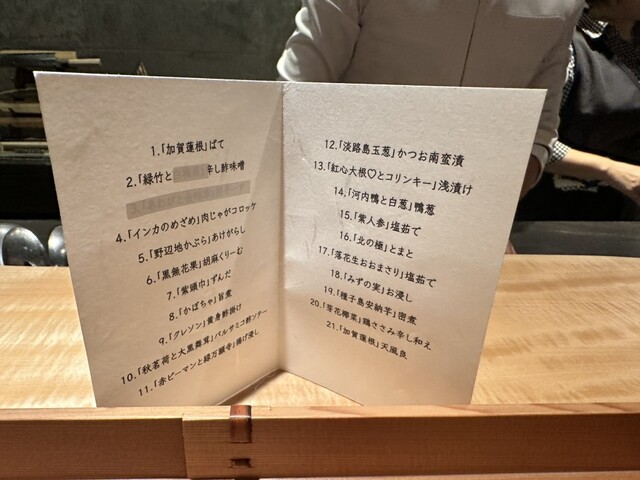 1.「加賀蓮根」ぱて
2.「緑竹と 辛し酢味噌
4.「インカのめざめ」肉じゃがコロッケ
5.「野辺地かぶら」あけがらし
6.「黒無花果」胡麻くりーむ
7.「紫頭巾」ずんだ
8.「かぼちゃ」旨煮
9.「クレソン」黄身酢掛け
10.「秋茗荷と大黒舞茸」バルサミコ酢ソテー
11.「赤ピーマンと緑万願寺」揚げ浸し
12.「淡路島玉葱」かつお南蛮漬
13.「紅心大根♡とコリンキー」浅漬け
14.「河内鴨と白葱」鴨葱
15.「紫人参」塩茹で
16.「北の極」とまと
17.「落花生おおまさり」塩茹で
18.「みずの実」お浸し
19.「種子島安納芋」密煮
20.「芽花椰菜」鶏ささみ辛し和え
21.「加賀蓮根」天風良